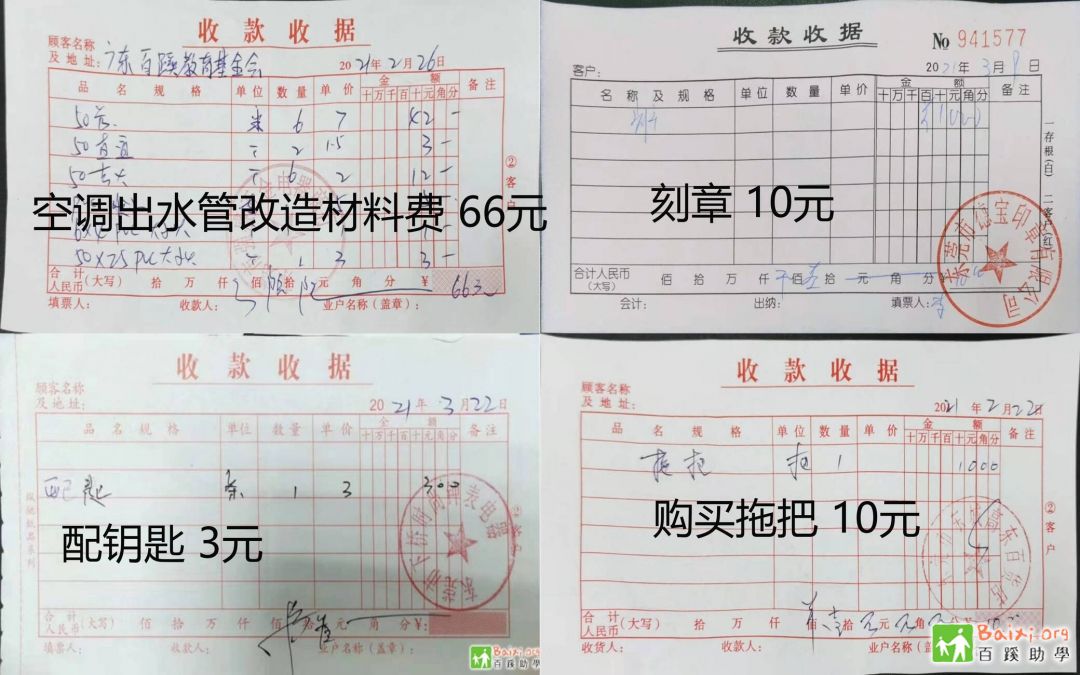 收款收据
顾客名称
及地址：广东百蹊教育基金会
2021年2月26日
品名规格 单位 数量 单价 金额 备注
十万千百十元角分
米 6 7 42 -
50直 2 1.5 3 -
6 2 12 -
空调出水管改造材料费 66元
50×75 PVC 1 3 3 -
合计
人民币(大写) 拾 万 仟 佰 拾 元 角 分 ¥ 66元
填票人： 收款人： 业户名称(盖章)：
②客户
收款收据
№ 941577
客户：
2021年3月9日
名称及规格 单位 数量 单价 金额 备注
十万千百十元角分
刻章 10元
合计人民币
(大写) 佰 拾 万 仟 佰 壹拾 元 角 分
会计： 出纳： 填票人：
一存根(白) 二客户(红)
东莞市德宝印章有限公司
收款收据
顾客名称
及地址：
2021年3月22日
品名规格 单位 数量 单价 金额 备注
十万千百十元角分
配匙 条 1 3 300
配钥匙 3元
合计
人民币(大写) 佰 拾 万 仟 佰 拾 元 角 分 ¥：
填票人： 收款人： 业户名称(盖章)：
Baixi.org
百蹊助學
收款收据
顾客名称
及地址：
2021年2月22日
品名规格 单位 数量 单价 金额 备注
十万千百十元角分
拖把 把 1 1000
购买拖把 10元
②客户
合计
人民币(大写) 拾 万 仟 佰 壹拾 元 角 分
收货人： 收款人： 业户名称(盖
Baixi.org
百蹊助學